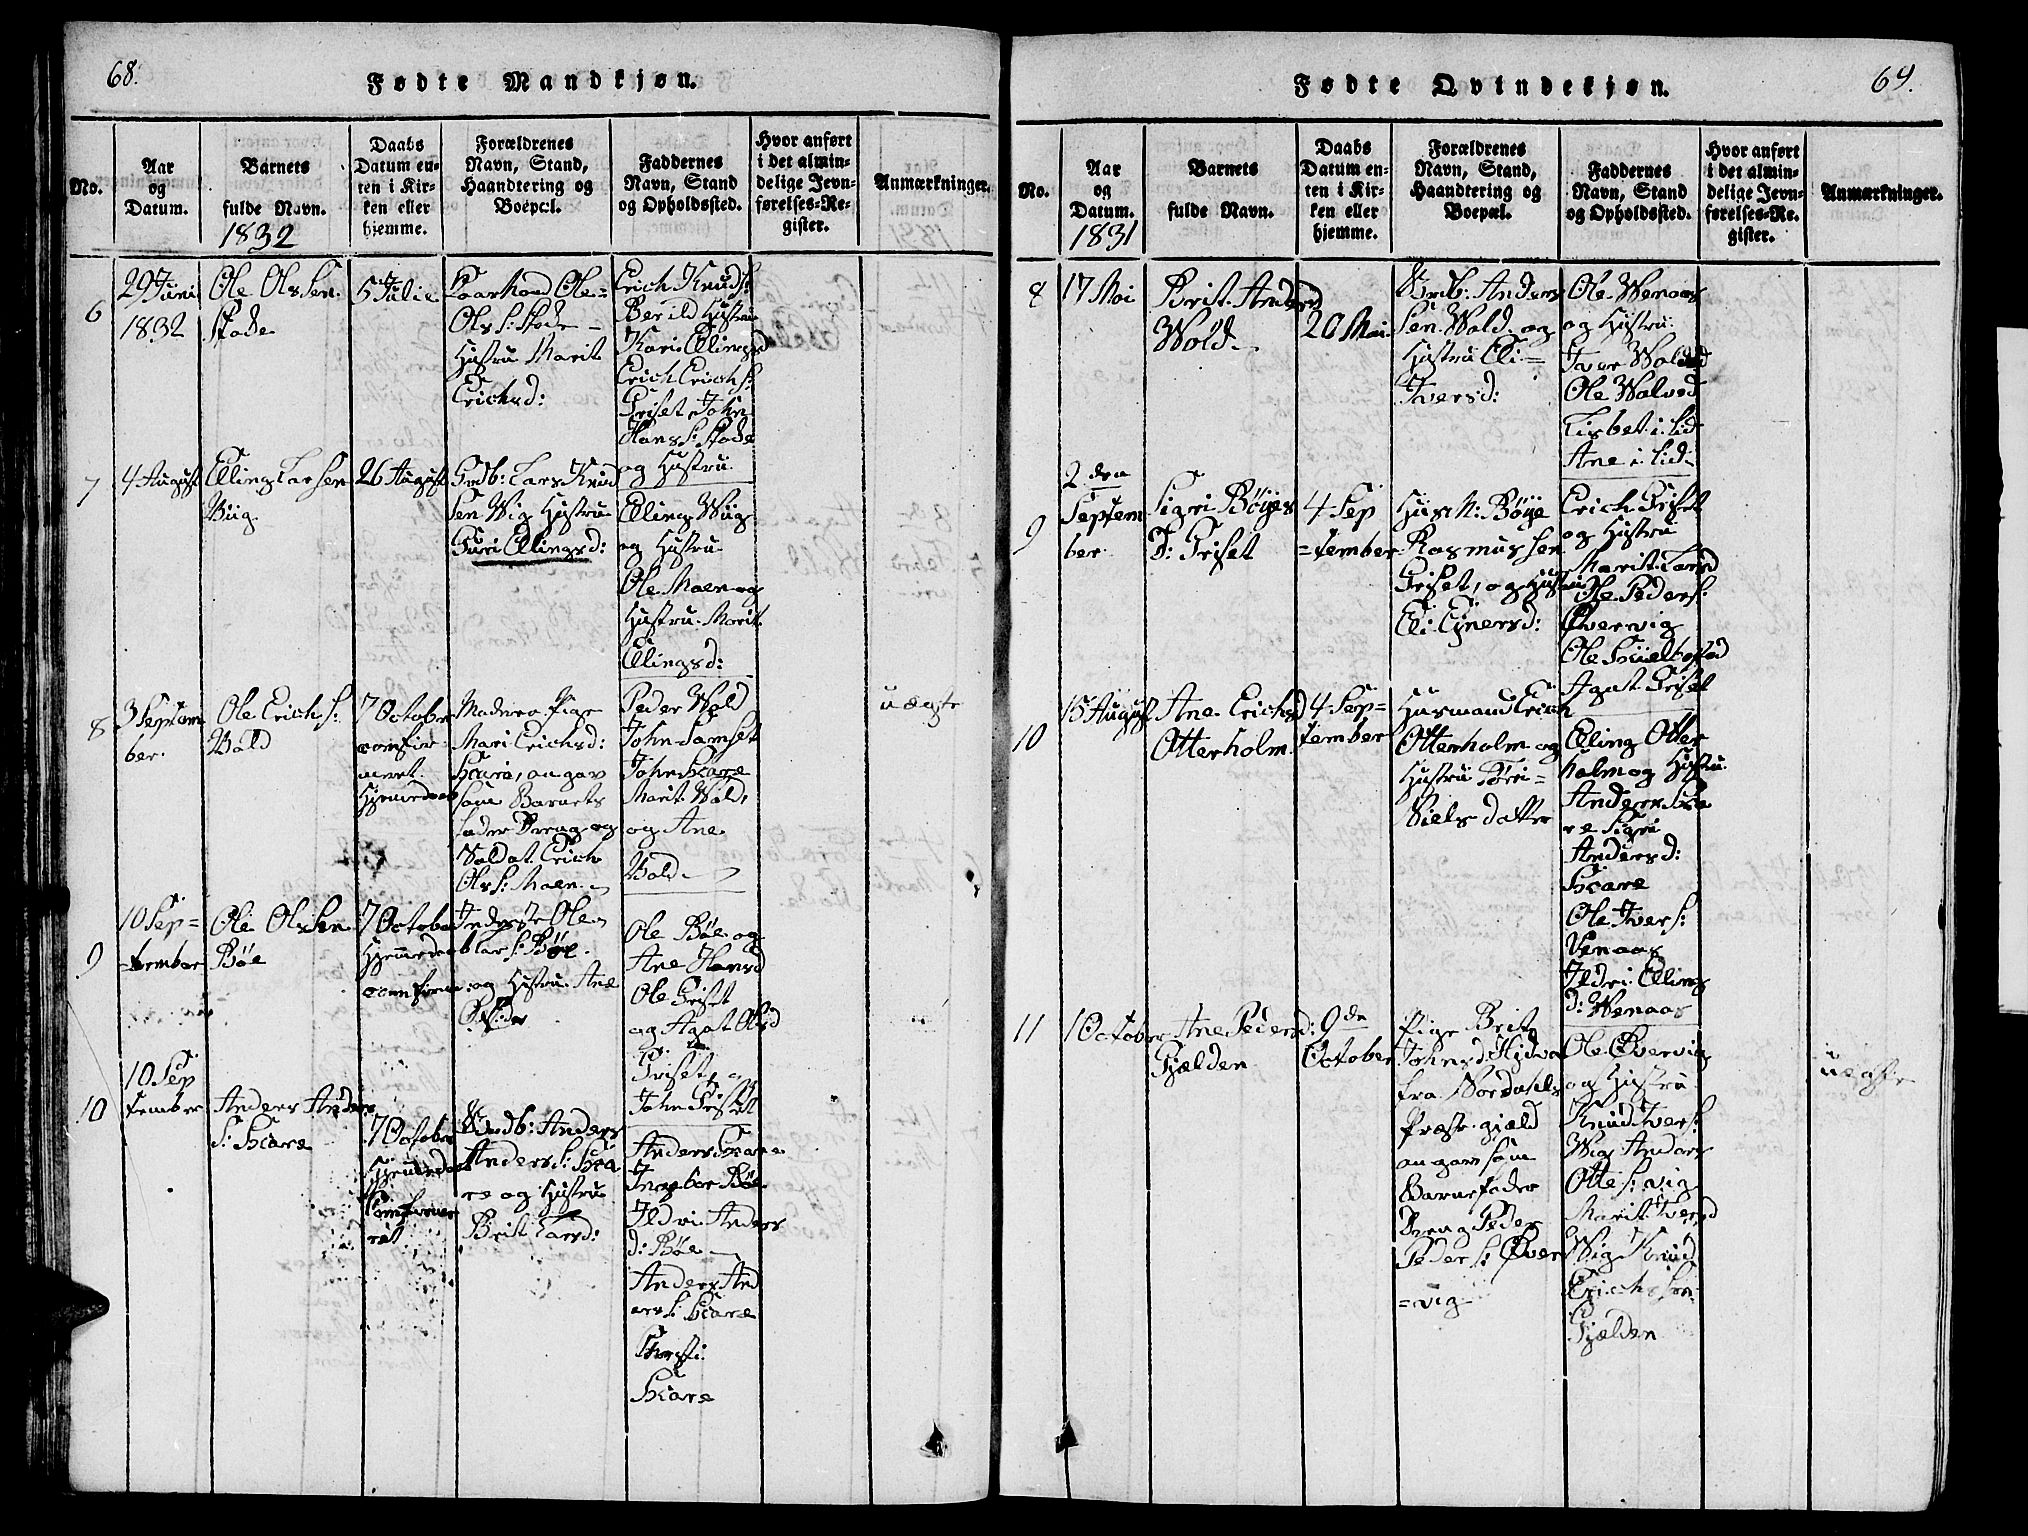 68.
Fødte Mandkjøn.
No.
Aar
og
Datum.
Barnets
fulde Navn.
1832
Daabs
Datum en-
ten i Kir-
ken eller
hjemme.
Forældrenes
Navn, Stand,
Haandtering og
Boepæl.
Faddernes
Navn, Stand
og Opholdssted.
Hvor anført
i det almin-
delige Jevn-
førelses-Re-
gister.
Anmærkninger.
6
29 Juni
1832
Ole Olssen
Stode
5 Julie
Ole
Ols S: Stode
Hustru Marit
Erichsd:
Erich Knuds:
Berild Hustru
Kari Ellingsd
Erich Erich s:
Griset John
Hans S: Stode
og Hustru
7
4 August
Elling Larsen
Wiig
26 August
Grdb: Lars Knud
Sen Wig Hustru
Guri Ellingsd:
Elling Wiig
og Hustru
Ole Moen og
Hustru Marit
Ellingsd:
8
3 Septem
ber.
Ole Erich S:
Wold
7 October
confir-
meret
Hjemmedaab
Pige
Mari Erichsd:
Skare, angav
som Barnets
fader Dreng og
Soldat Erich
Ols S: Moen
Peder Wold
John Samset
John Skare
Marit Wold,
og Ane
Wold
uægte
9
10 Sep=
tember
Ole Olssen
Böe
7 October
Hjemmedaab
confirme
Inderste Ole
Lars S: Böe
og Hustru Ane
Ole Böe og
Ane Hansd
Ole Griset
og Agat Olsd
Griset, og
John Griset
10
10 Sep
tember
Anders Anders
S: Skare
7 October
Hjemmedaab
Confirme
ret
Grdb: Anders
Anders S: Ska
re og Hustru
Brit Larsd:
Anders Skare
Ingebor Böe
Ildri Anders
d: Böe
Anders And
ers S: Skare
Kirsti
Skare
69.
Fødte Qvindekjøn.
No.
Aar
og
Datum.
1831
Barnets
fulde Navn.
Daabs
Datum en-
ten i Kir-
ken eller
hjemme.
Forældrenes
Navn, Stand,
Haandtering og
Boepæl.
Faddernes
Navn, Stand
og Opholdssted.
Hvor anført
i det almin-
delige Jevn-
førelses-Re-
gister.
Anmærkninger.
8
17 Mai
Brit Andersd
Wold
20 Mai
Grdb: Anders
Sen Wold og
Hustru Eli=
Iversd:
Ole Wenaas
og Hustru
Iver Wold
Ole Wolvod
Lisbet i Lid
Ane i Lid
9
2den
Septem
ber.
Sigri Böyes
D: Griset
4 Sep
=tember
Husm: Böye
Rasmussen
Griset, og Hustru
Eli Ejnersd:
Erich Griset
og Hustru
Marit Larsd
Ole Peders:
Övervig
Ole Skielbostad
Agat Griset
10
15 August
Ane Erichsd
Otterholm
4 Sep=
tember
Husmand Erich
Otterholm og
Hustru Töri=
Nielsdatter
Elling Otter
holm og Hustru
Anders Ska
re Sigri
Andersd:
Skare
Ole Ivers:
Venaas
Ildri Ellings
d: Wenaas
11
1 October
Ane Pedersd:
Fjelden
9de
October
Pige Brit
Johnsd: 
fra Sordals
Præstegield
angav som
Barnefader
Dreng Peder
Peder S: Över
=vig
Ole Övervig
og Hustru
Knud Ivers:
Wig Anders
Otte S: vig
Marit Iversd
Wig Knud
Erichsen
Fjelden
uægte